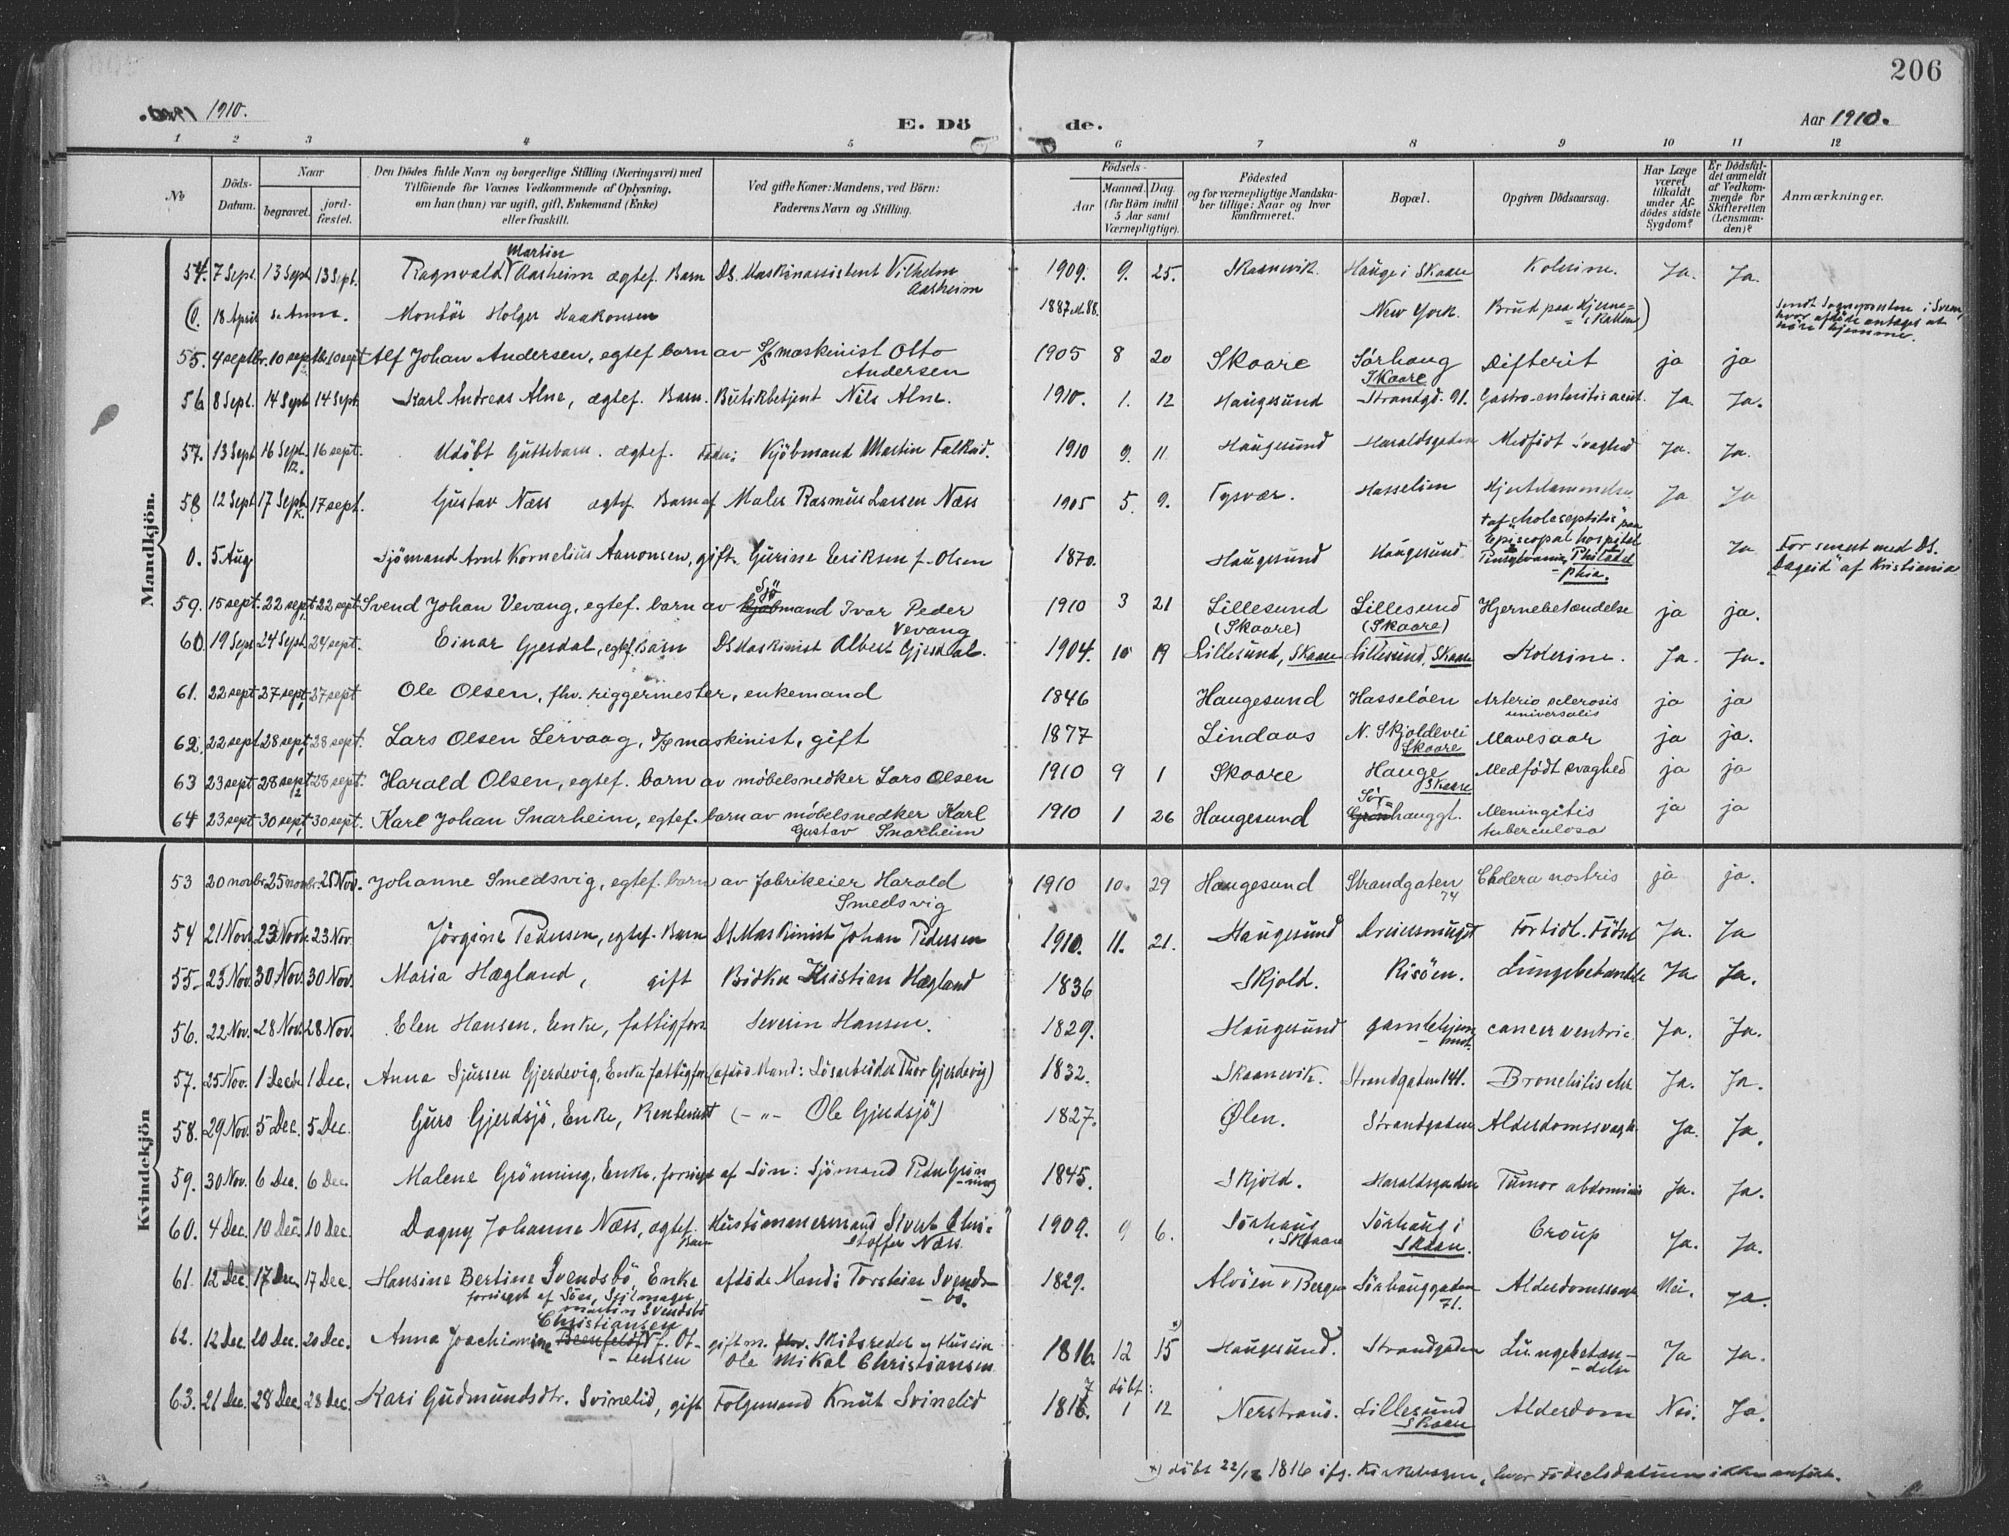 206
1910.
E. Dö de.
Aar 1910.
1 2 3 4 5 6 7 8 9 10 11 12
№ Döds-Datum. Naar begravet. jordfæstet. Den Dödes fulde Navn og borgerlige Stilling (Næringsvei) med Tilföiende for Voxnes Vedkommende af Oplysning, om han (hun) var ugift, gift, Enkemand (Enke) eller fraskilt. Ved gifte Koner: Mandens, ved Börn: Faderens Navn og Stilling. Födsels- Aar Maaned. Dag. (for Börn indtil 5 Aar samt Værnepligtige). Födested og for værnepligtige Mandskaber tillige: Naar og hvor konfirmeret. Bopæl. Opgiven Dödsaarsag. Har Læge været tilkaldt under Afdödes sidste Sygdom? Er Dödsfaldet anmeldt af Vedkommende for Skifteretten (Lensmanden)? Anmærkninger.
Mandkjön.
54. 7 Sept. 13 Sept. 13 Sept. Ragnvald Martin Aasheim ægtef. Barn DS. Maskinassistent Vilhelm Aasheim 1909. 9. 25. Skaanevik. Hauge i Skaare Kolerine. Ja. Ja.
(0. 18 April Montör Holger Haakonsen 1887 New York. Brud paa Hjerne-
55. 4 septbr. 10 septbr. 10 sept Alf Johan Andersen, egtef. barn av S/s maskinist Otto Andersen 1905 8 20 Skaare Sørhaug Skaare Difterit ja ja
56 8 Sept. 14 Sept 14 Sept. Karl Andreas Alne, ægtef. Barn. Butikbetjent Nils Alne. 1910. 1. 12 Haugesund Strandgd. 91. Gastro-enteritis acut. Ja. Ja.
57. 13 Sept 16 Sept. 16 sept. Udöbt Guttebarn. ægtef. Fader: Kjöbmand Martin Falkeid. 1910 9. 11 Haugesund Haraldsgaden Medfödt svaghed Ja. Ja.
58 12 Sept 17 Sept. 17 sept. Gustav Næss ægtef. Barn af Maler Rasmus Larsen Næss 1905 5. 9. Tysvær. Hasseløen Ja Ja
0. 5 Aug Sjömand Arnt Kornelius Aanonsen, gift. Gurine Eriksen f. Olsen 1870. Haugesund Haugesund Episcopal hospital Pensylvania, Philadelphia. Ja "Dageid" af Kristiania
59. 15 sept. 22 sept. 22 sept. Svend Johan Vevang, egtef. barn av Sjömand Ivar Peder Vevang 1910 3 21 Lillesund (Skaare) Lillesund (Skaare) Hjernebetændelse ja ja.
60. 19 Sept 24 Sept. 24 sept. Einar Gjesdal, egtef. Barn DS Maskinist Albert Gjesdal. 1904. 10 19 Lillesund, Skaare Lillesund, Skaare Kolerine. Ja. Ja.
61. 22 sept 27 sept. 27 sept Ole Olsen, fhv. riggermester, enkemand 1846 Haugesund Hasseløen Arterio sclerosis universalis ja ja
62. 22 sept. 28 sept. 28 sept. Lars Olsen Lervaag, d/s maskinist, gift 1877 Lindaas N. Skjoldevei Skaare Mavesaar ja ja.
63 23 sept 28 sept. 28 sept. Harald Olsen, egtef. barn av møbelsnedker Lars Olsen 1910 9 1 Skaare Hauge Skaare Medfödt svaghed ja ja
64 23 sept 30 sept. 30 sept. Karl Johan Snarheim, egtef. barn av möbelsnedker Karl Gustav Snarheim 1910 1 26 Haugesund Sørhauggt. Meningitis tuberculosa ja ja
Kvindekjön
53 20 novbr. 25 novbr. 25 Nov. Johanne Smedsvig, egtef. barn av fabrikeier Harald Smedsvig 1910 10. 29 Haugesund Strandgaten 74 Cholera nostris ja ja.
54 21 Nov. 23 Nov. 23 Nov. Jörgine Pedersen, egtef. Barn DS Maskinist Johan Pedersen 1910. 11. 21. Haugesund Fortidl. Födsel Ja. Ja
55. 23 Nov. 30 Nov. 30 Nov. Maria Hægland, gift Bödker Kristian Hægland 1836 Skjold. Risöen. Lungebetændelse Ja Ja.
56. 22 Nov. 28 Nov. 28 Nov. Elen Hansen, Enke, fattigfors. Severin Hansen. 1829. Haugesund Gamlehjemmet. cancer ventric. Ja. Ja.
57. 25 Nov. 1 Decbr. 1 Dec. Anna Sjursen Gjerdevig, Enke fattigfors. (afdöd Mand: Lösarbeider Thor Gjerdevig) 1832. Skaanevik. Strandgaten 141. Bronchitis chr. Ja. Ja.
58. 29 Nov. 5 Dec. 5 Dec. Guro Gjerdsjö, Enke, Rentenist (-"- Ole Gjerdsjö) 1827. Ølen. Strandgaden Alderdomssvagh. Ja. Ja.
59. 30 Nov. 6 Dec. 6 Dec. Malene Grönning, Enke, forsörget af Sön: Sjömand Peder Grönning 1845. Skjold. Haraldsgaden Tumor abdominis Ja. Ja.
60. 4 Dec. 10 Dec. 10 Dec. Dagny Johanne Næss, ægtef. Barn Hustömmermand Sivert Christoffer Næss 1909. 9 6. Sörhaug i Skaare Sörhaug i Skaare. Croup Ja. Ja.
61. 12 Dec. 17 Dec. 17 Dec. Hansine Bertine Svendsbö, Enke forsörget af Sön, Seilmager Martin Svendsbö afdöde Mand: Torstein Svendsbö. 1829. Alvöen v Bergen Sörhauggaden 71. Alderdomssvagh. Nei. Ja.
62. 12 Dec. 20 Dec. 20 Dec. Anna Joachimine Christiansen f. Ottensen gift m. fhv. Skibsreder og Huseier Ole Mikal Christiansen 1816. 12 15 *) Haugesund. Strandgaden Lungebetændelse Ja Ja.
63. 21 Dec. 28 Dec. 28 Dec. Kari Gudmundsdtr. Svinelid, gift Folgemand Knut Svinelid 1817. döbt: 1 12 Nerstrand. Lillesund Skaare Alderdom Nei. Ja.
*) döbt 22/12 1816 ifg. Kirkebogen, hvor Födselsdatum ikke anført.